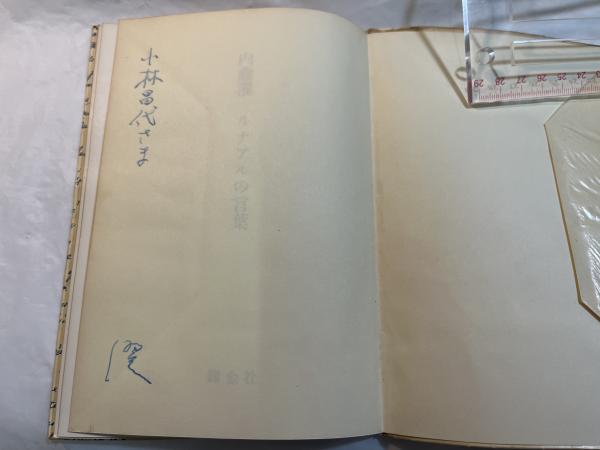 小林昌代さま
濯
内藤濯 ルナアルの言葉
錬金社
29 28 27 26 25 24 23